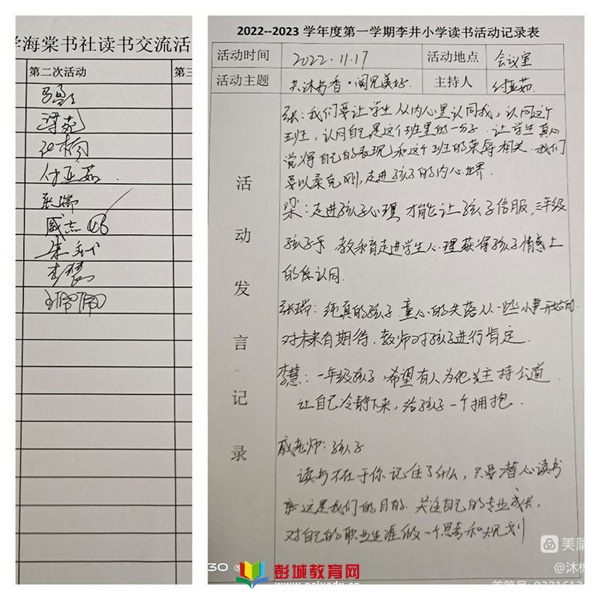 学海棠书社读书交流活
第二次活动
第三
付亚茹
李慧
2022--2023 学年度第一学期李井小学读书活动记录表
活动时间
2022.11.17
活动地点
会议室
活动主题
共沐书香·阅见美好
主持人
付亚茹
活动发言记录
张:我们要让学生从内心里认同我,认同这个
班,认同自己是这个班里的一分子.让学生真心
觉得自己的表现和这个班的荣辱相关.我们
要以柔克刚,走进孩子的内心世界.
梁:走进孩子心理,才能让孩子信服,三年级
孩子 教和育走进学生心理获得孩子情感上
的认同.
张瑞:纯真的孩子 童心的失落从一些小事开始的.
对未来有期待.教师对孩子进行肯定.
李慧:一年级孩子 希望有人为他主持公道.
让自己冷静下来,给孩子一个拥抱.
戚老师:孩子
读书不在于你记住了什么,只要潜心读书
这是我们的目的.关注自己的专业成长,
对自己的职业生涯做一个思考和规划
30
彭城教育网
美篇
@沐
美篇号